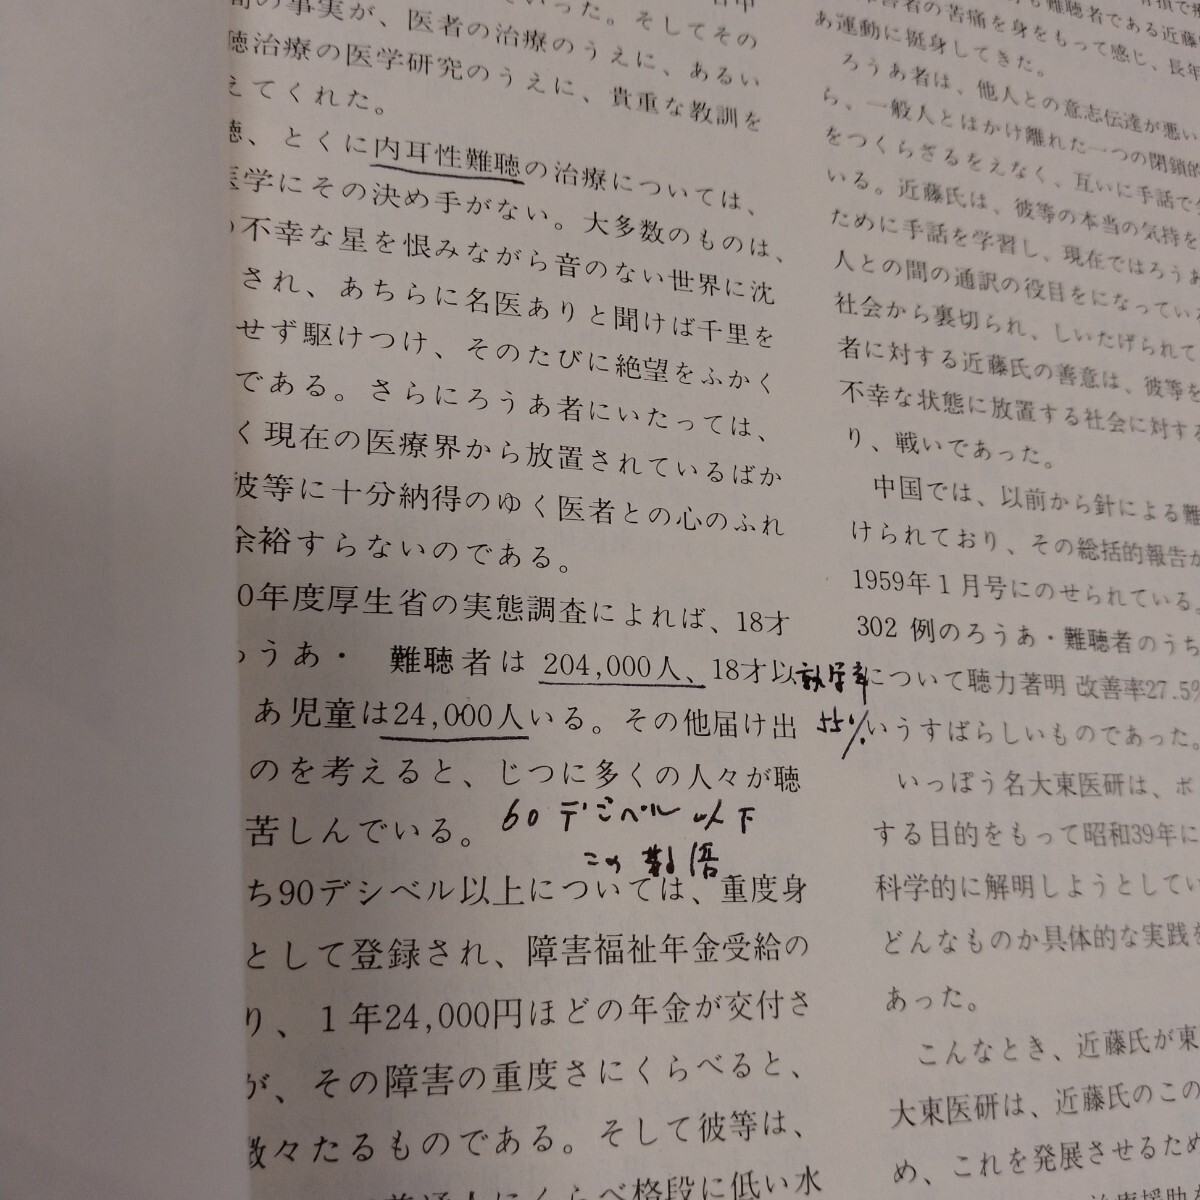 の事実が、医者の治療のうえに、あるい
聴治療の医学研究のうえに、貴重な教訓を
えてくれた。
聴、とくに内耳性難聴の治療については、
医学にその決め手がない。大多数のものは、
不幸な星を恨みながら音のない世界に沈
され、あちらに名医ありと聞けば千里を
せず駆けつけ、そのたびに絶望をふかく
である。さらにろうあ者にいたっては、
く現在の医療界から放置されているばか
彼等に十分納得のゆく医者との心のふれ
余裕すらないのである。
0年度厚生省の実態調査によれば、18才
ろうあ・難聴者は204,000人、18才以
あ児童は24,000人いる。その他届け出
のを考えると、じつに多くの人々が聴
苦しんでいる。
60デシベル以下
この
ち90デシベル以上については、重度身
として登録され、障害福祉年金受給の
り、1年24,000円ほどの年金が交付さ
が、その障害の重度さにくらべると、
数々たるものである。そして彼等は、
普通人にくらべ格段に低い水
就学率
55%
害者の苦痛を身をもって感じ、長年
あ運動に挺身してきた。
ろうあ者は、他人との意志伝達が悪い
ら、一般人とはかけ離れた一つの閉鎖的
をつくらざるをえなく、互いに手話で
いる。近藤氏は、彼等の本当の気持を
ために手話を学習し、現在ではろうあ
人との間の通訳の役目をになっている
社会から裏切られ、しいたげられて
者に対する近藤氏の善意は、彼等を
不幸な状態に放置する社会に対する
り、戦いであった。
中国では、以前から針による難
けられており、その総括的報告が
1959年1月号にのせられている。
302例のろうあ・難聴者のうち
について聴力著明改善率27.5%
いうすばらしいものであった。
いっぽう名大東医研は、ポ
する目的をもって昭和39年に
科学的に解明しようとしてい
どんなものか具体的な実践を
あった。
こんなとき、近藤氏が東
大東医研は、近藤氏のこの
め、これを発展させるため